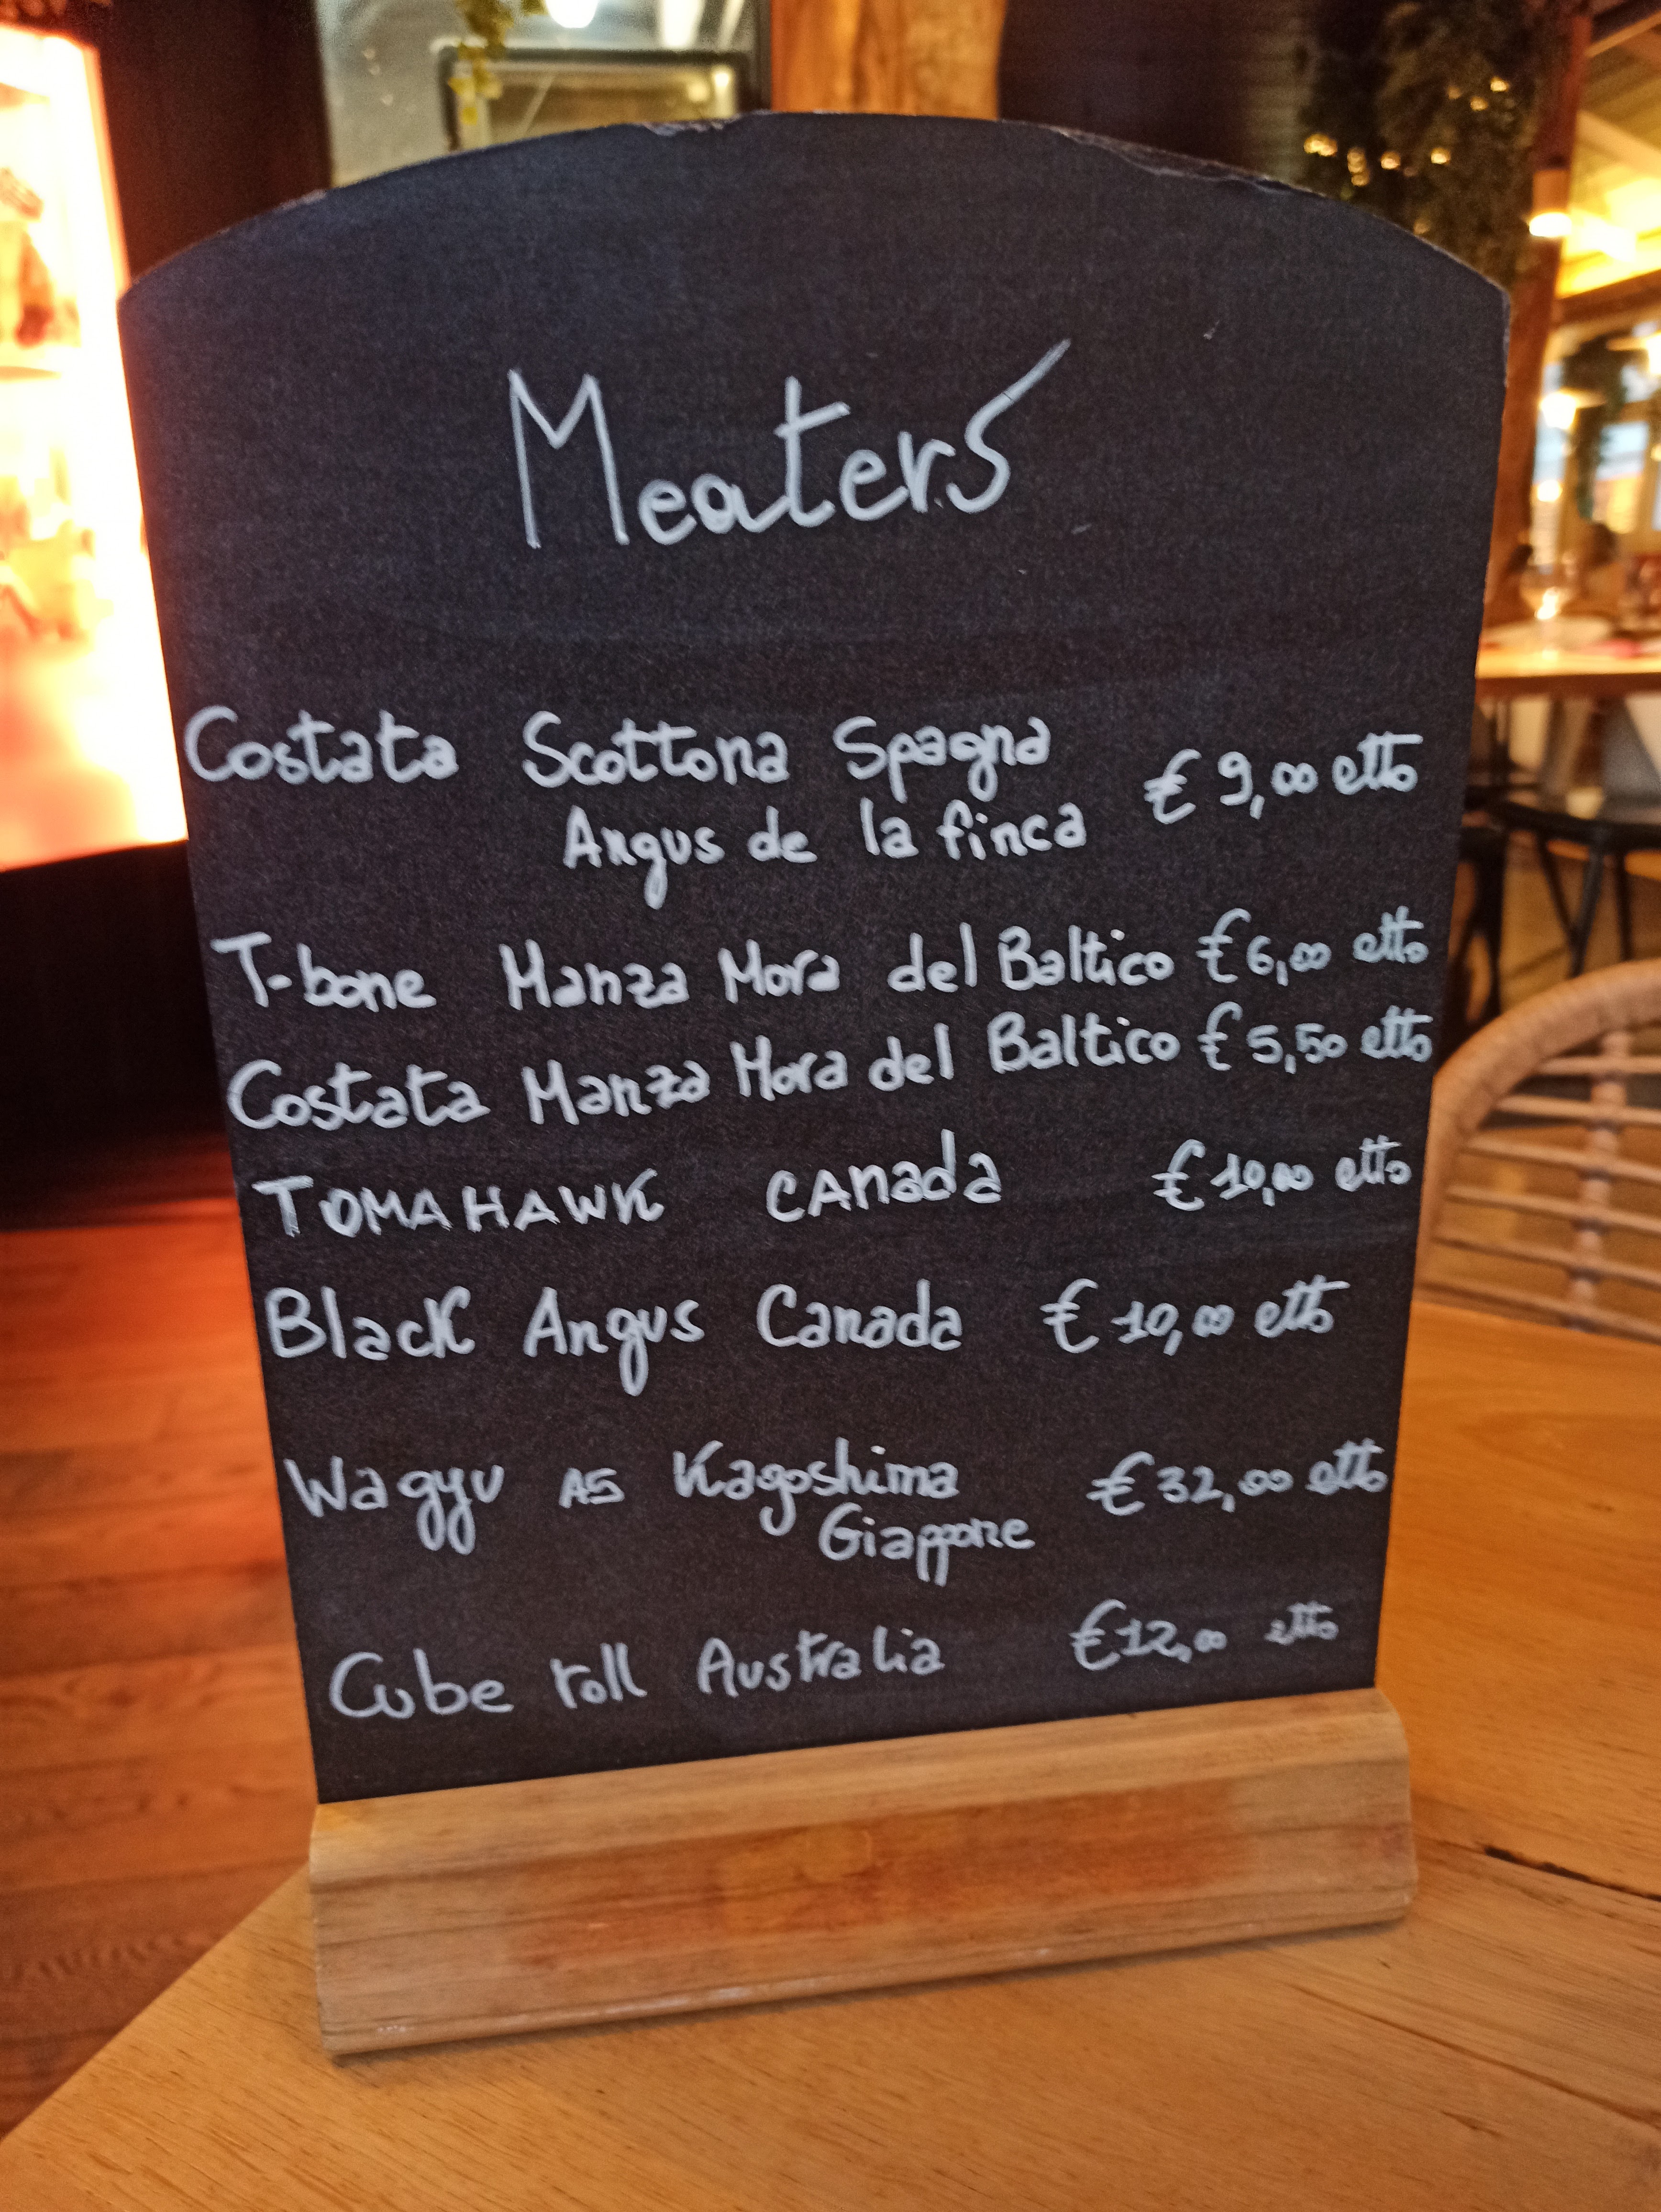 Meaters
Costata Scottona Spagna € 9,00 etto
Angus de la finca
T-bone Manza Mora del Baltico € 6,00 etto
Costata Manza Mora del Baltico € 5,50 etto
TOMAHAWK CANada € 10,00 etto
Black Angus Canada € 10,00 etto
Wagyu A5 Kagoshima € 32,00 etto
Giappone
Cube roll Australia € 12,00 etto